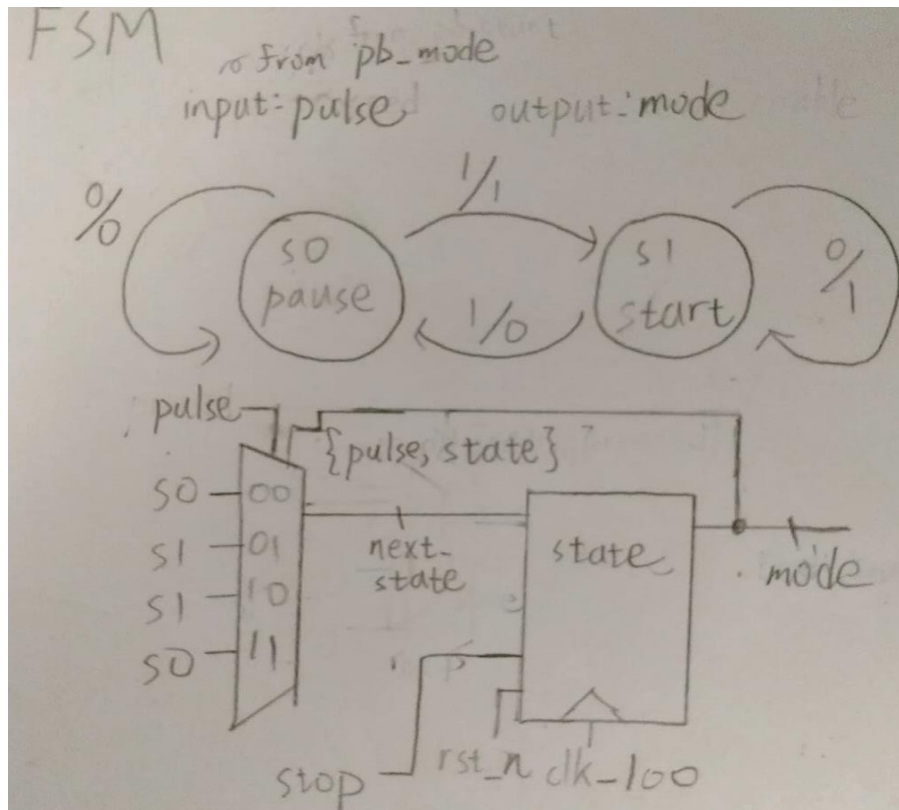 FSM
from pb_mode
input: pulse output: mode
1/1
0/0
s0
pause
s1
start
0/1
1/0
pulse
{pulse, state}
S0 00
S1 01
S1 10
S0 11
next_
state
state
mode
stop
rst_n clk_100